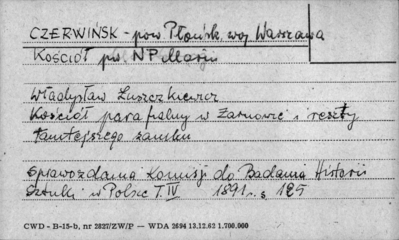 CZERWIŃSK - pow Płońsk, woj Warszawa
Kościół pw. NP Marii
Władysław Łuszczkiewicz
Kościół parafialny w Żarnowie i resztы
tamtejszego zamku
Sprawozdania Komisji do Badania Historii
Sztuki w Polsce T. IV 1891 r. s 125
CWD - B-15-b, nr 2827/ZW/P — WDA 2694 13.12.62 1.700.000